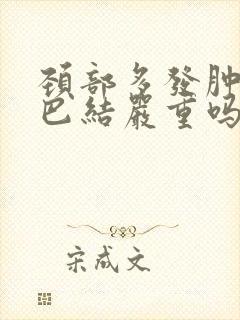 頸部多發肿
巴結嚴重吗
宋成文